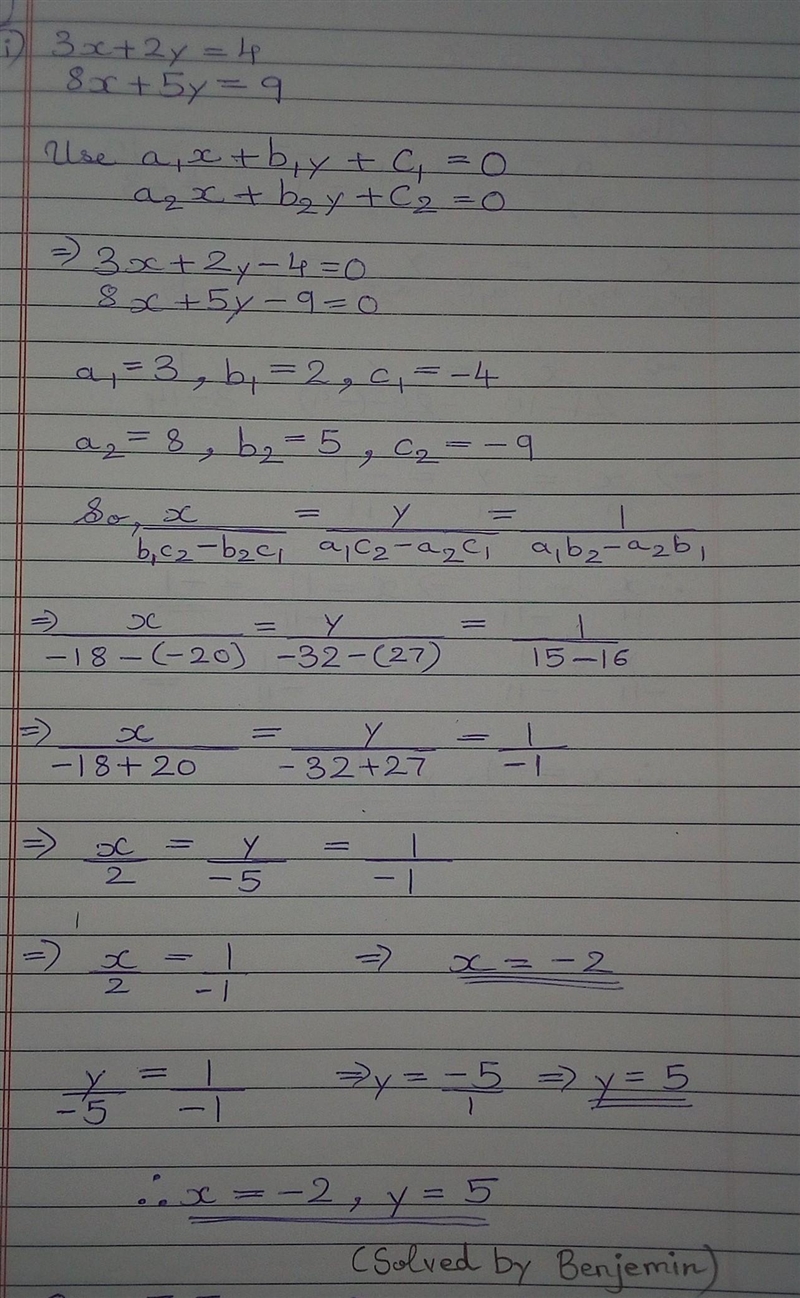 i) 3x + 2y = 4
8x + 5y = 9
Use a₁x + b₁y + c₁ = 0
a₂x + b₂y + c₂ = 0
⇒ 3x + 2y − 4 = 0
8x + 5y − 9 = 0
a₁ = 3, b₁ = 2, c₁ = −4
a₂ = 8, b₂ = 5, c₂ = −9
So, x/(b₁c₂ − b₂c₁) = y/(a₁c₂ − a₂c₁) = 1/(a₁b₂ − a₂b₁)
⇒ x/(−18 − (−20)) = y/(−32 − (27)) = 1/(15 − 16)
⇒ x/(−18 + 20) = y/(−32 + 27) = 1/−1
⇒ x/2 = y/−5 = 1/−1
⇒ x/2 = 1/−1 ⇒ x = −2
y/−5 = 1/−1 ⇒ y = −5/1 ⇒ y = 5
∴ x = −2, y = 5
(Solved by Benjemin)